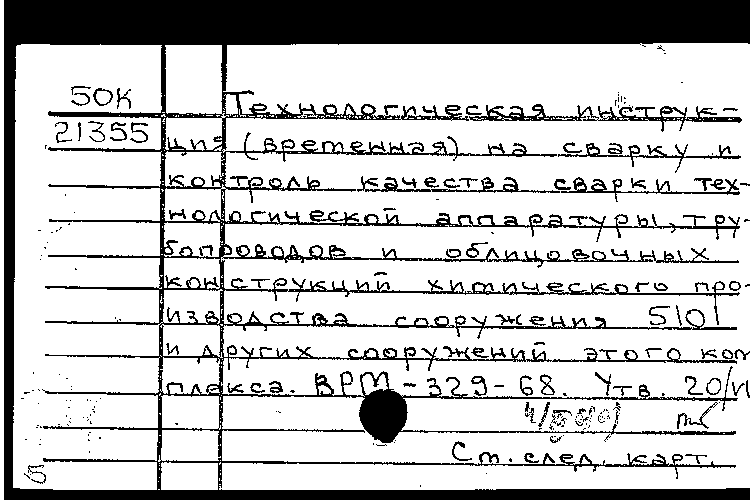 50К Технологическая инструк-
21355 ция (временная) на сварку и
контроль качества сварки тех-
нологической аппаратуры, тру-
бопроводов и облицовочных
конструкций химического про-
изводства сооружения 5101
и других сооружений этого ком
плекса. ВРМ-329-68. Утв. 20/VI
Ст. след. карт.
5